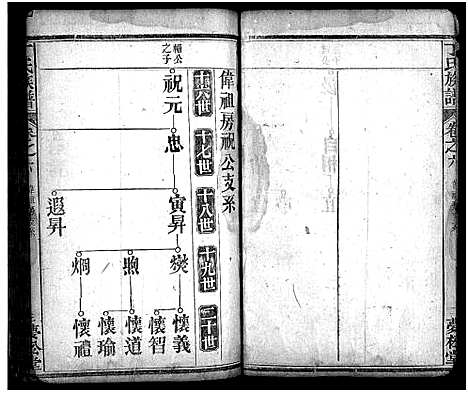 丁氏族譜
卷之六
偉祖房祝公支系
十六世
十七世
十八世
十九世
二十世
福公之子
祝元
忠
寅昇
遐昇
煐
煦
烱
懷義
懷智
懷道
懷瑜
懷禮
氏族譜
卷之六